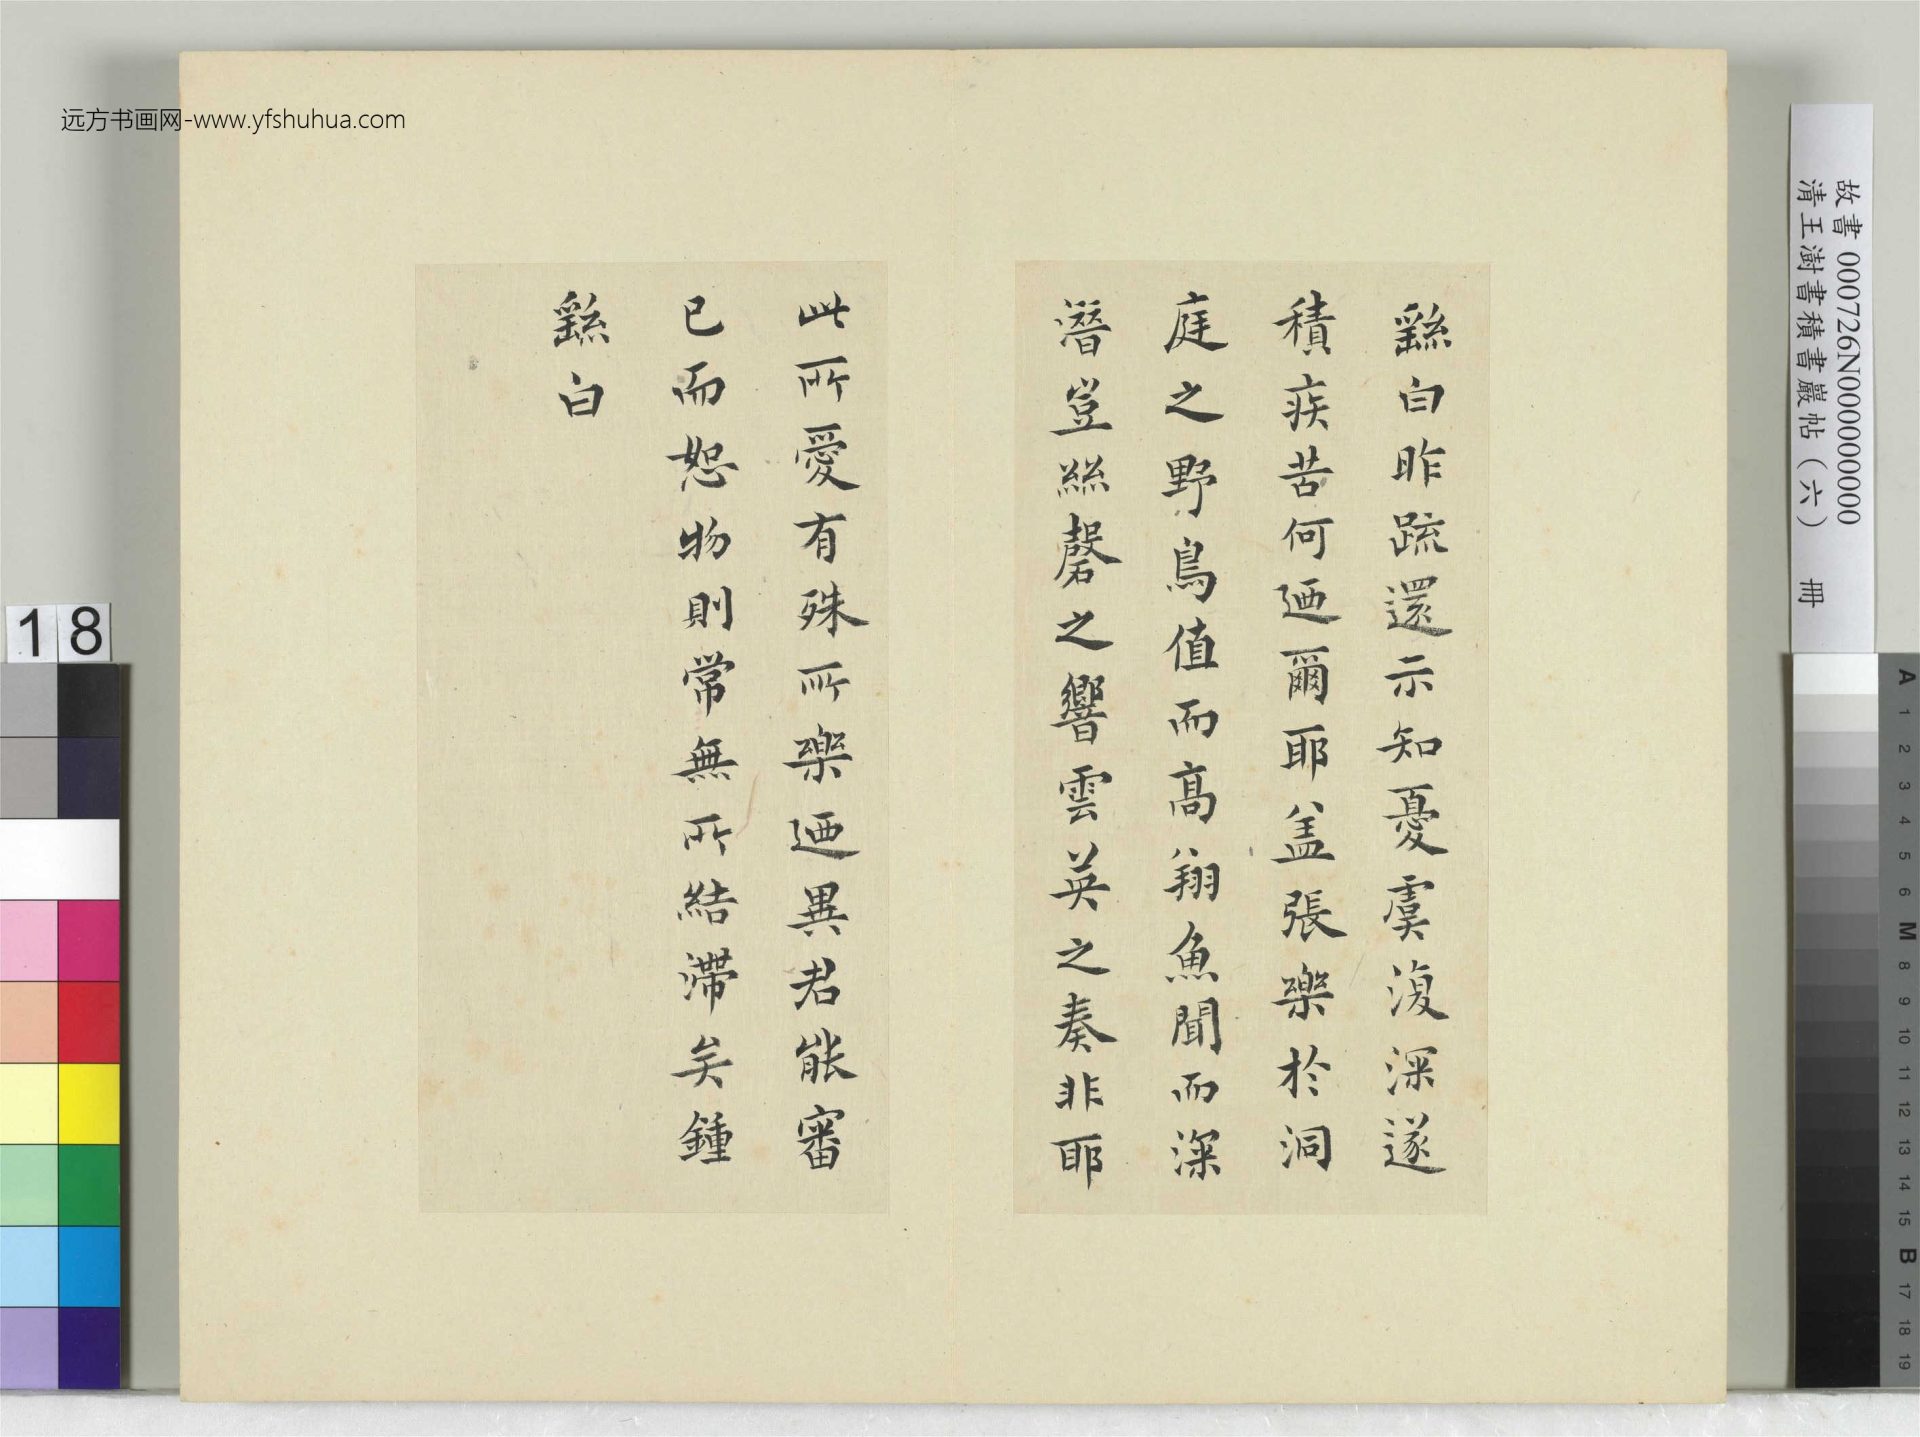 繇白昨疏還示知憂虞復深遂
積疾苦何迺爾耶蓋張樂於洞
庭之野鳥值而高翔魚聞而深
潛豈絲磬之響雲英之奏非耶
此所愛有殊所樂迺異君能審
已而恕物則常無所結滯矣鍾
繇白
远方书画网-www.yfshuhua.com
故書 000726N000000000
清王澍書積書巖帖（六） 冊
18
A
1
2
3
4
5
6
M
8
9
10
11
12
13
14
15
B
17
18
19